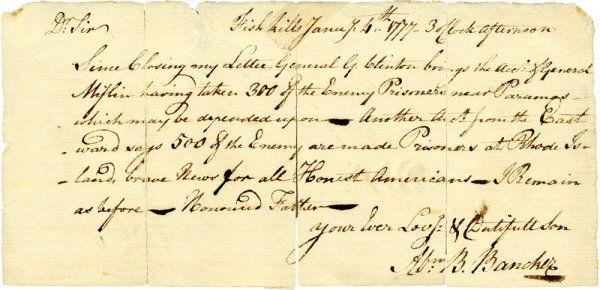 Dr Sir
Fish kills Januy. 4th 1777 - 3 oClock afternoon
Since Closing my Letter, General G. Clinton brings the Acct. of General
Miflin having taken 300 of the Enemy Prisoners near Paramos -
which may be depended upon - Another Act. from the East
ward says 500 of the Enemy are made Prisoners at Rhode Is-
land, brave News for all Honest Americans - I Remain
as before - Honoured Father -
your Ever Lovg. & Dutifull Son
Abm. B. Bancker